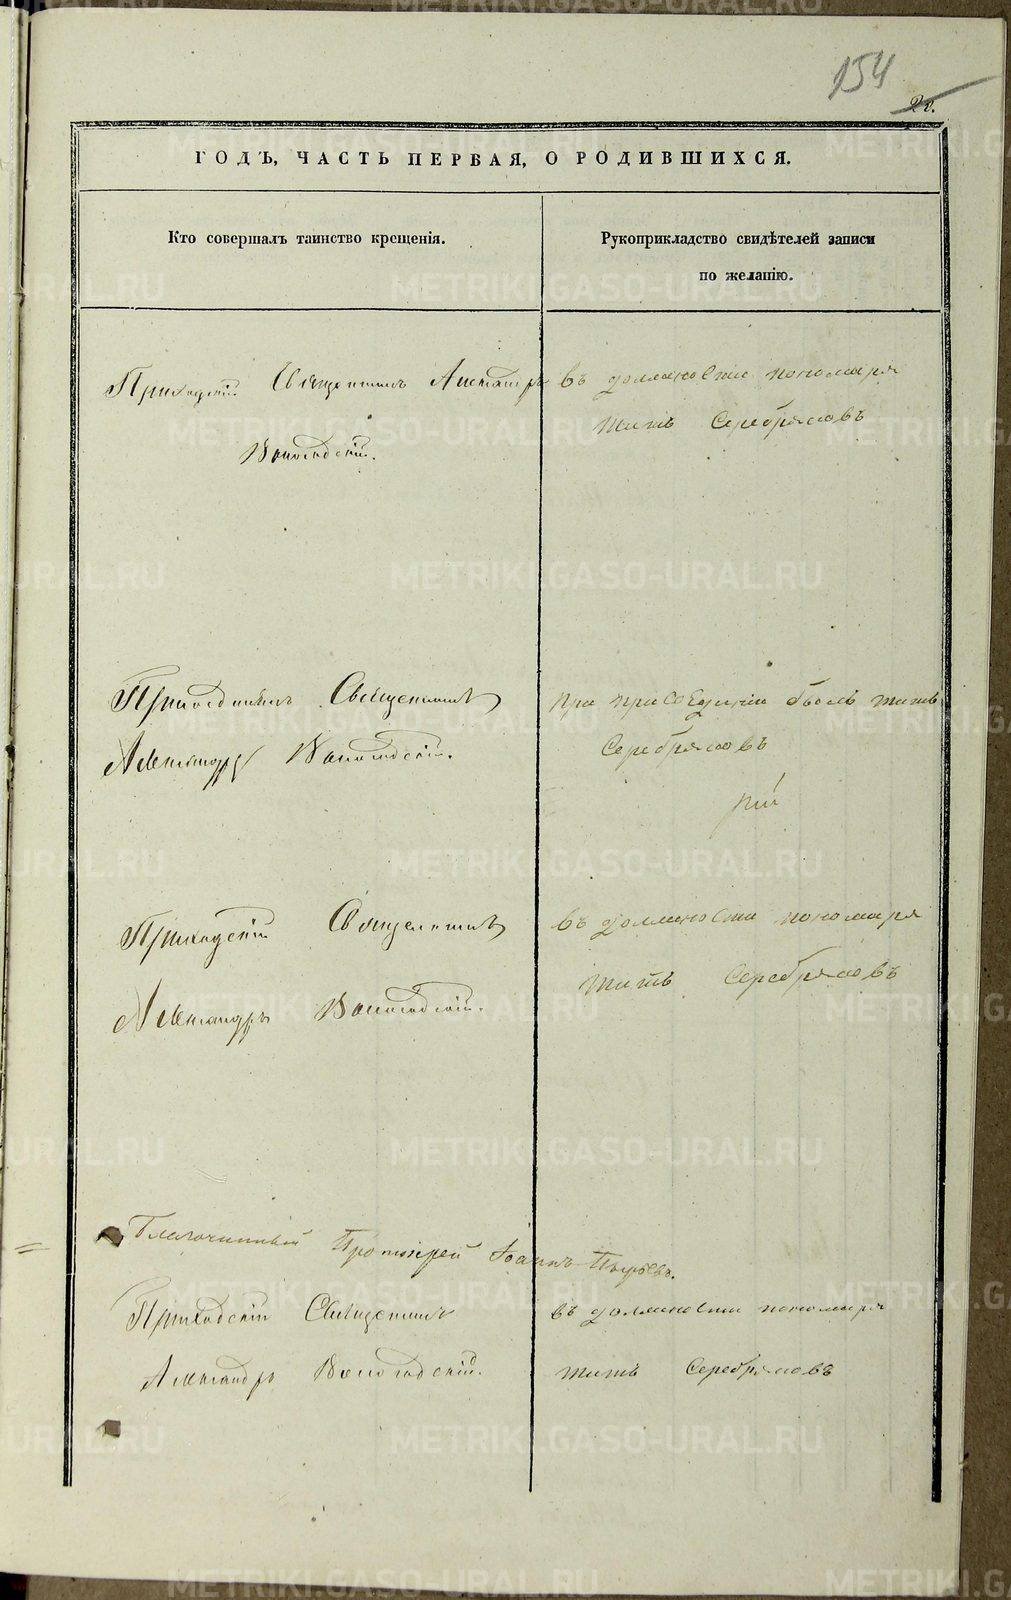 154
22.
ГОДЪ, ЧАСТЬ ПЕРВАЯ, О РОДИВШИХСЯ.
Кто совершалъ таинство крещенія.
Рукоприкладство свидѣтелей записи
по желанію.
Приходскій Священникъ Александръ
Вологодскій.
въ должности пономаря
Титъ Серебряковъ
Священникъ
Александръ Вологодскій.
при присоединіи былъ Титъ
Серебряковъ
Приходскій Священникъ
Александръ Вологодскій.
въ должности пономаря
Титъ Серебряковъ
Благочинный Протоіерей Іоаннъ
Приходскій Священникъ
Александръ Вологодскій.
въ должности пономаря
Титъ Серебряковъ
METRIKI.GASO-URAL.RU